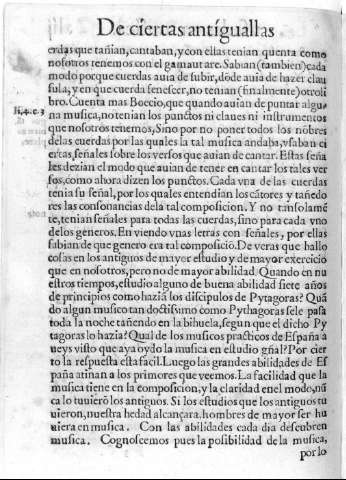 De ciertas antiguallas
erdas que tañian, cantaban, y con ellas tenian quenta como
nosotros tenemos con el gamaut are. Sabian (tambien) cada
modo porque cuerdas auia de subir, dōde auia de hazer clau
sula, y en que cuerda fenescer, no tenian (finalmente) otro li
bro. Cuenta mas Boecio, que quando auian de puntar algu-
na musica, no tenian los punctos ni claues ni instrumentos
li.4.c.3
que nosotros tenemos, Sino por no poner todos los nōbres
de las cuerdas por las quales la tal musica andaba, vsaban ci
ertas, señales sobre los versos que auian de cantar. Estas seña
les dezian el modo que auian de tener en cantar los tales ver
sos, como ahora dizen los punctos. Cada vna de las cuerdas
tenia su señal, por los quales entendian los cātores y tañedo
res las consonancias de la tal composicion. Y no tansolamē
te, tenian señales para todas las cuerdas, sino para cada vno
de los generos. En viendo vnas letras con señales, por ellas
sabian de que genero era tal composiciō. De veras que hallo
cosas en los antiguos de mayor estudio y de mayor exercicio
que en nosotros, pero no de mayor abilidad. Quando en nu
estros tiempos, estudio alguno de buena abilidad siete años
de principios como hazia los discipulos de Pytagoras? Quā
do algun musico tan doctissimo como Pythagoras sele passa
toda la noche tañendo en la bihuela, segun que el dicho Py
tagoras lo hazia? Qual de los musicos practicos de España a
ueys visto que aya oydo la musica en estudio gñal? Por cier
to la respuesta esta facil. Luego las grandes abilidades de Es
paña atinan a los primores que veemos. La facilidad que la
musica tiene en la composicion, y la claridad enel modo, nū
ca lo tuuierō los antiguos. Si los estudios que los antiguos tu
uieron, nuestra hedad alcançara. hombres de mayor ser hu
uiera en musica. Con las abilidades cada dia descubren
musica. Cognoscemos pues la posibilidad de la musica,
por lo